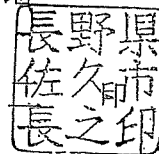 長野県
佐久市
印
長之印